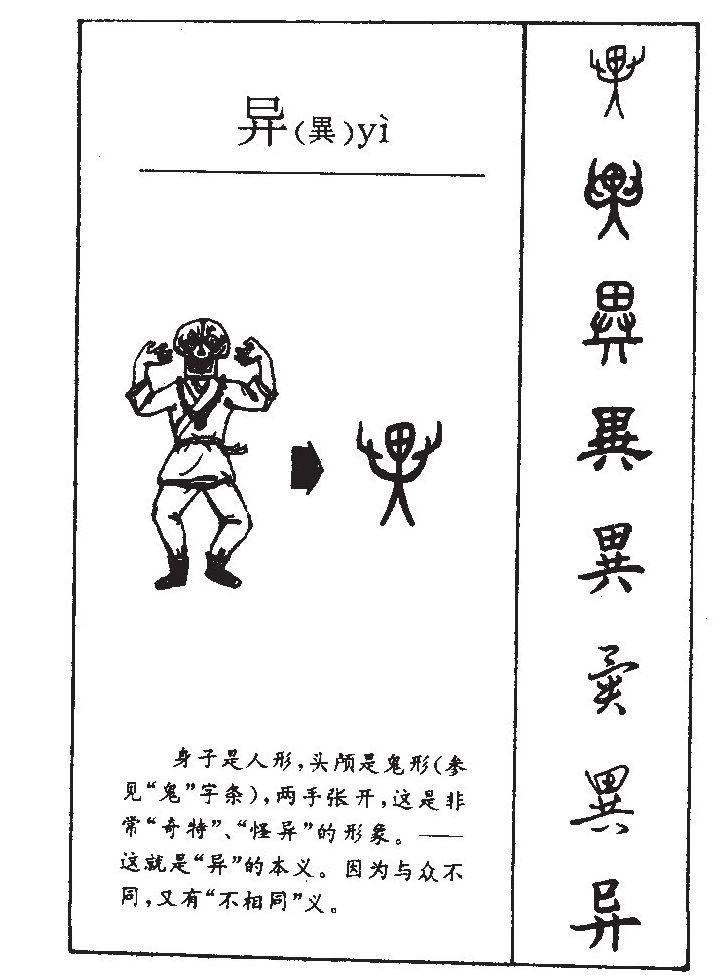 异(異)yì
身子是人形，头颅是鬼形(参
见“鬼”字条)，两手张开，这是非
常“奇特”、“怪异”的形象。——
这就是“异”的本义。因为与众不
同，又有“不相同”义。
異
異
異
異
異
異
异